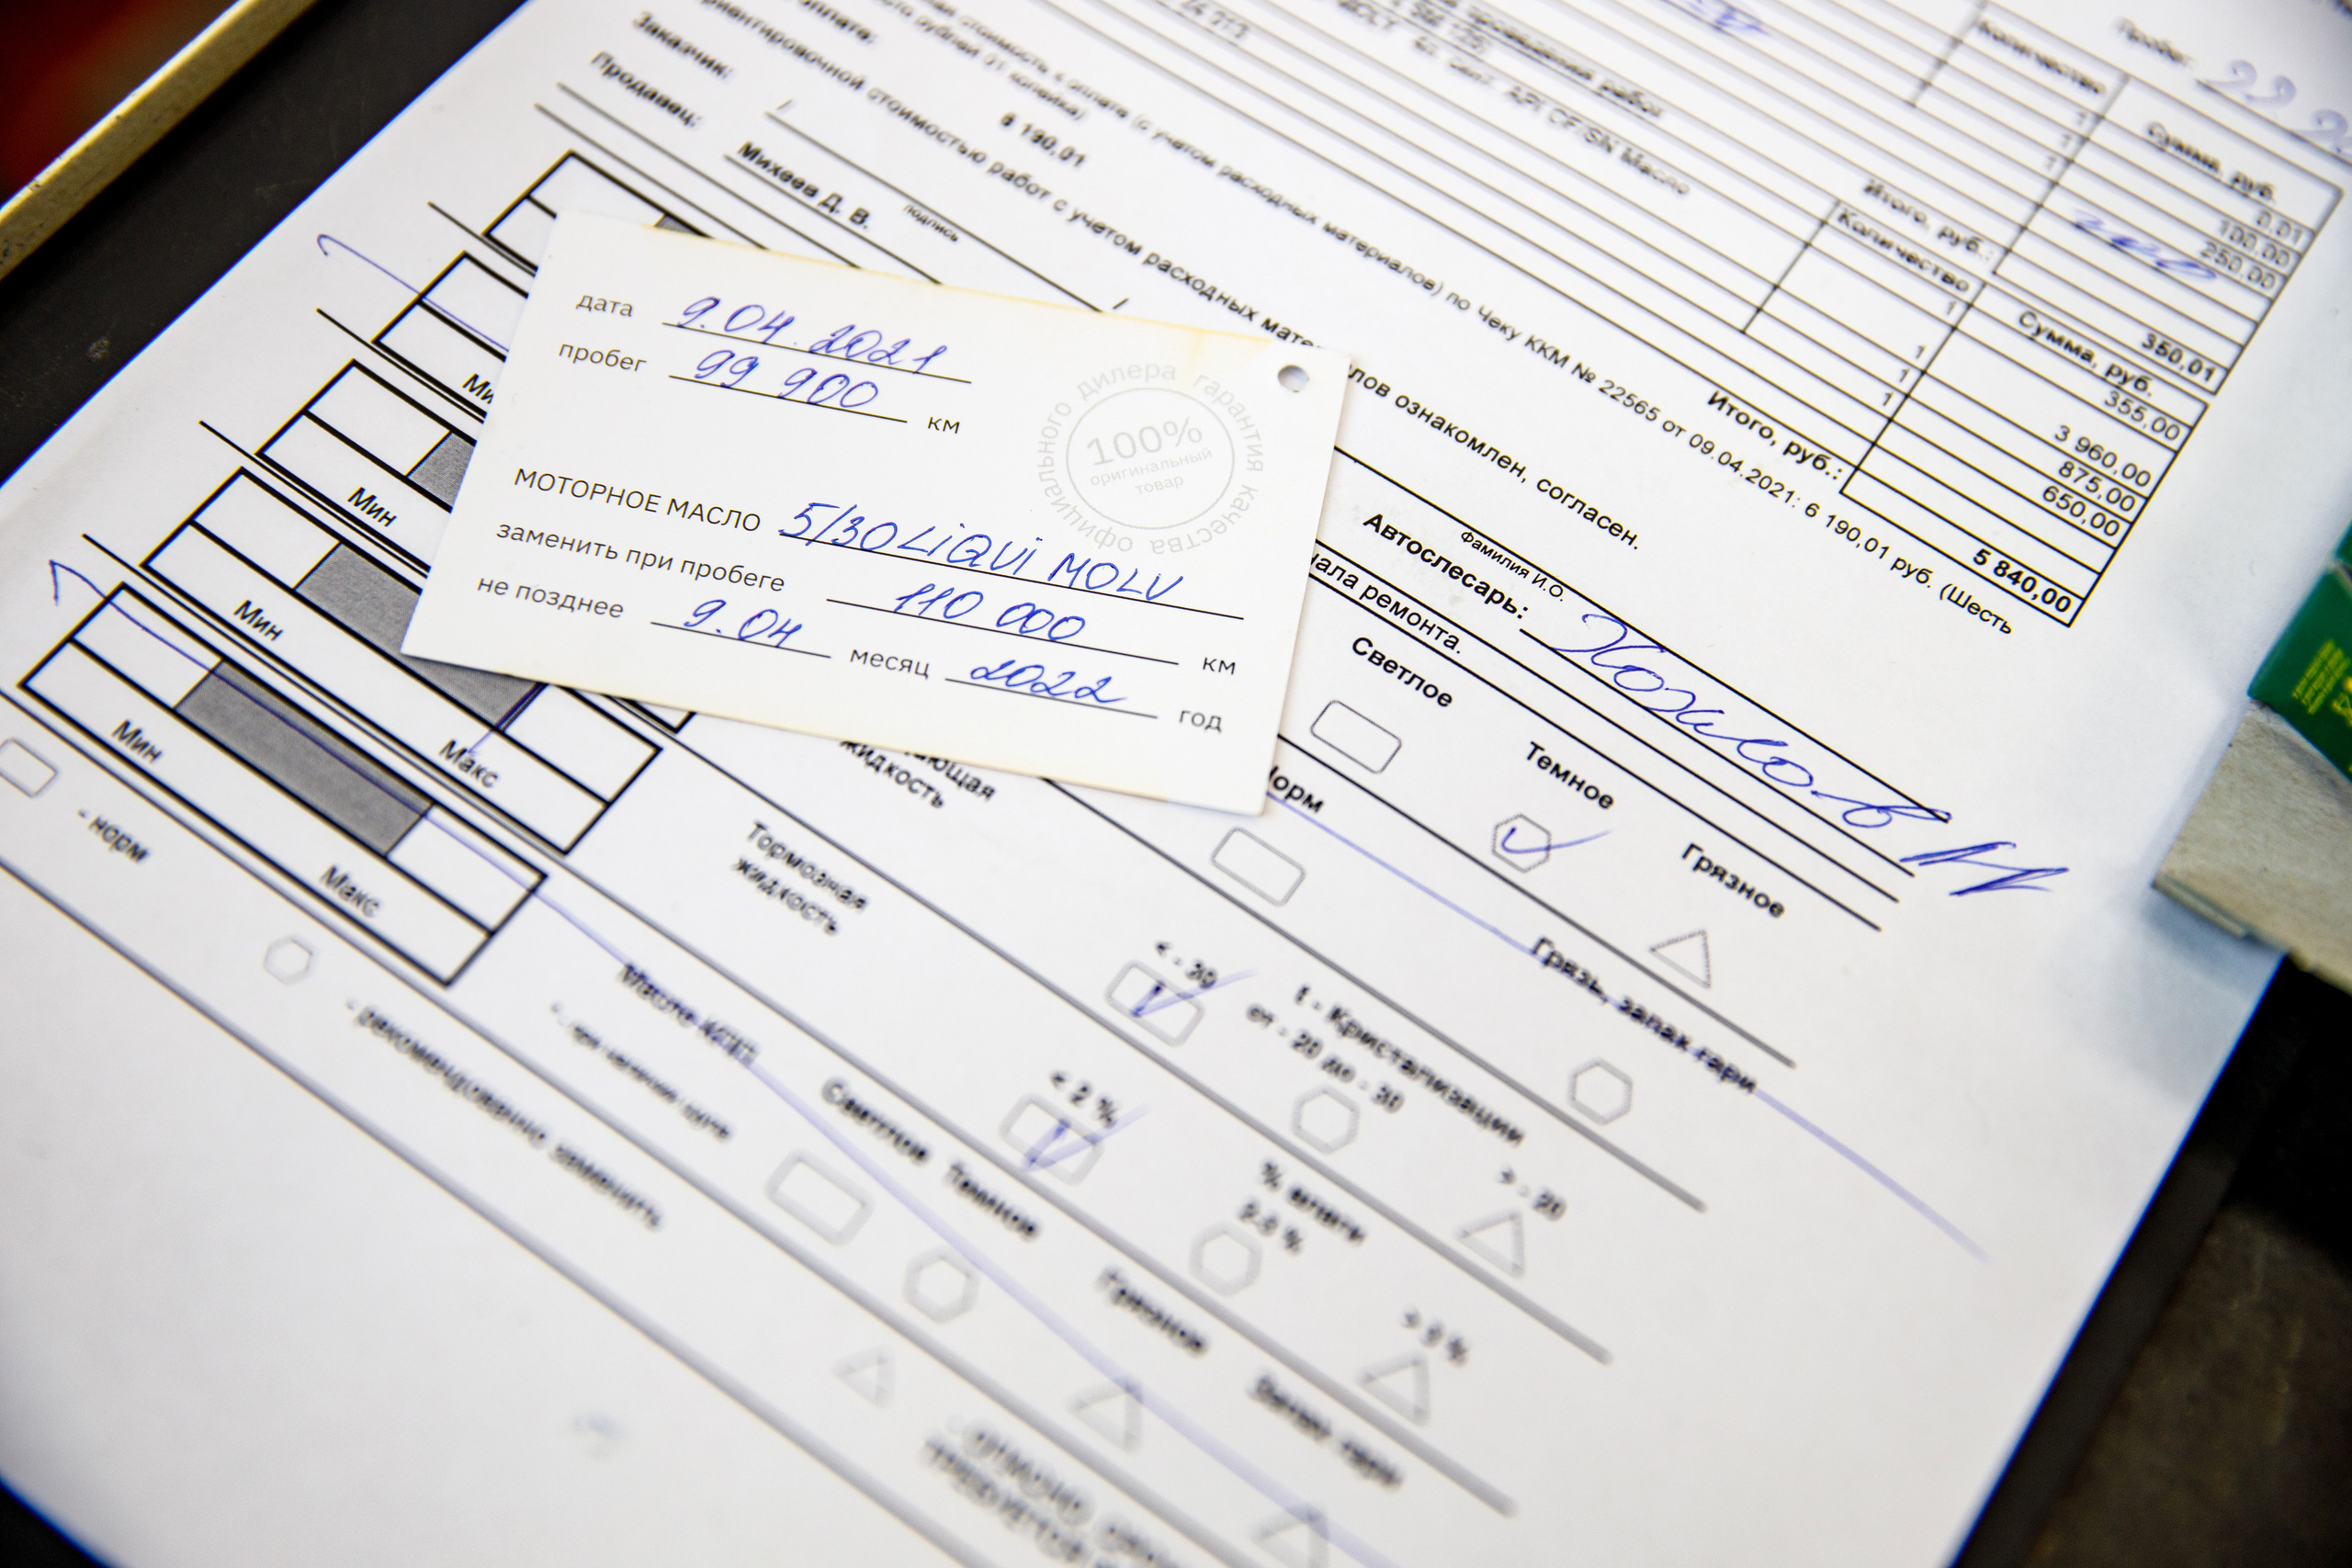 Пробег:
Количество
Сумма, руб.
1
0.01
1
100.00
1
250.00
Итого, руб.:
350,01
API CF/SN Масло
Количество
Сумма, руб.
1
355,00
1
3 960,00
1
875,00
1
650,00
Итого, руб.:
5 840,00
стоимость к оплате (с учетом расходных материалов) по Чеку ККМ № 22565 от 09.04.2021: 6 190,01 руб. (Шесть
рублей 01 копейка)
оплате:
6 190,01
стоимостью работ с учетом расходных
ознакомлен, согласен.
Заказчик:
/
подпись
/
Фамилия И.О.
Продавец:
Михеев Д. В.
Автослесарь:
ремонта.
дата 9.04.2021
пробег 99 900 км
МОТОРНОЕ МАСЛО 5/30 LiQUi MOLV
заменить при пробеге 110 000 км
не позднее 9.04 месяц 2022 год
гарантия качества официального дилера
100%
оригинальный
товар
Светлое
Темное
Грязное
Мин
Мин
Мин
Макс
Мин
Макс
жидкость
Грязь, запах гари
Тормозная
жидкость
< - 30
t - Кристализации
от - 20 до - 30
> - 20
< 2 %
% влаги
> 3 %
Масло АКПП
Светлое
Темное
Грязное
Запах гари
- норм
- рекомендовано заменить